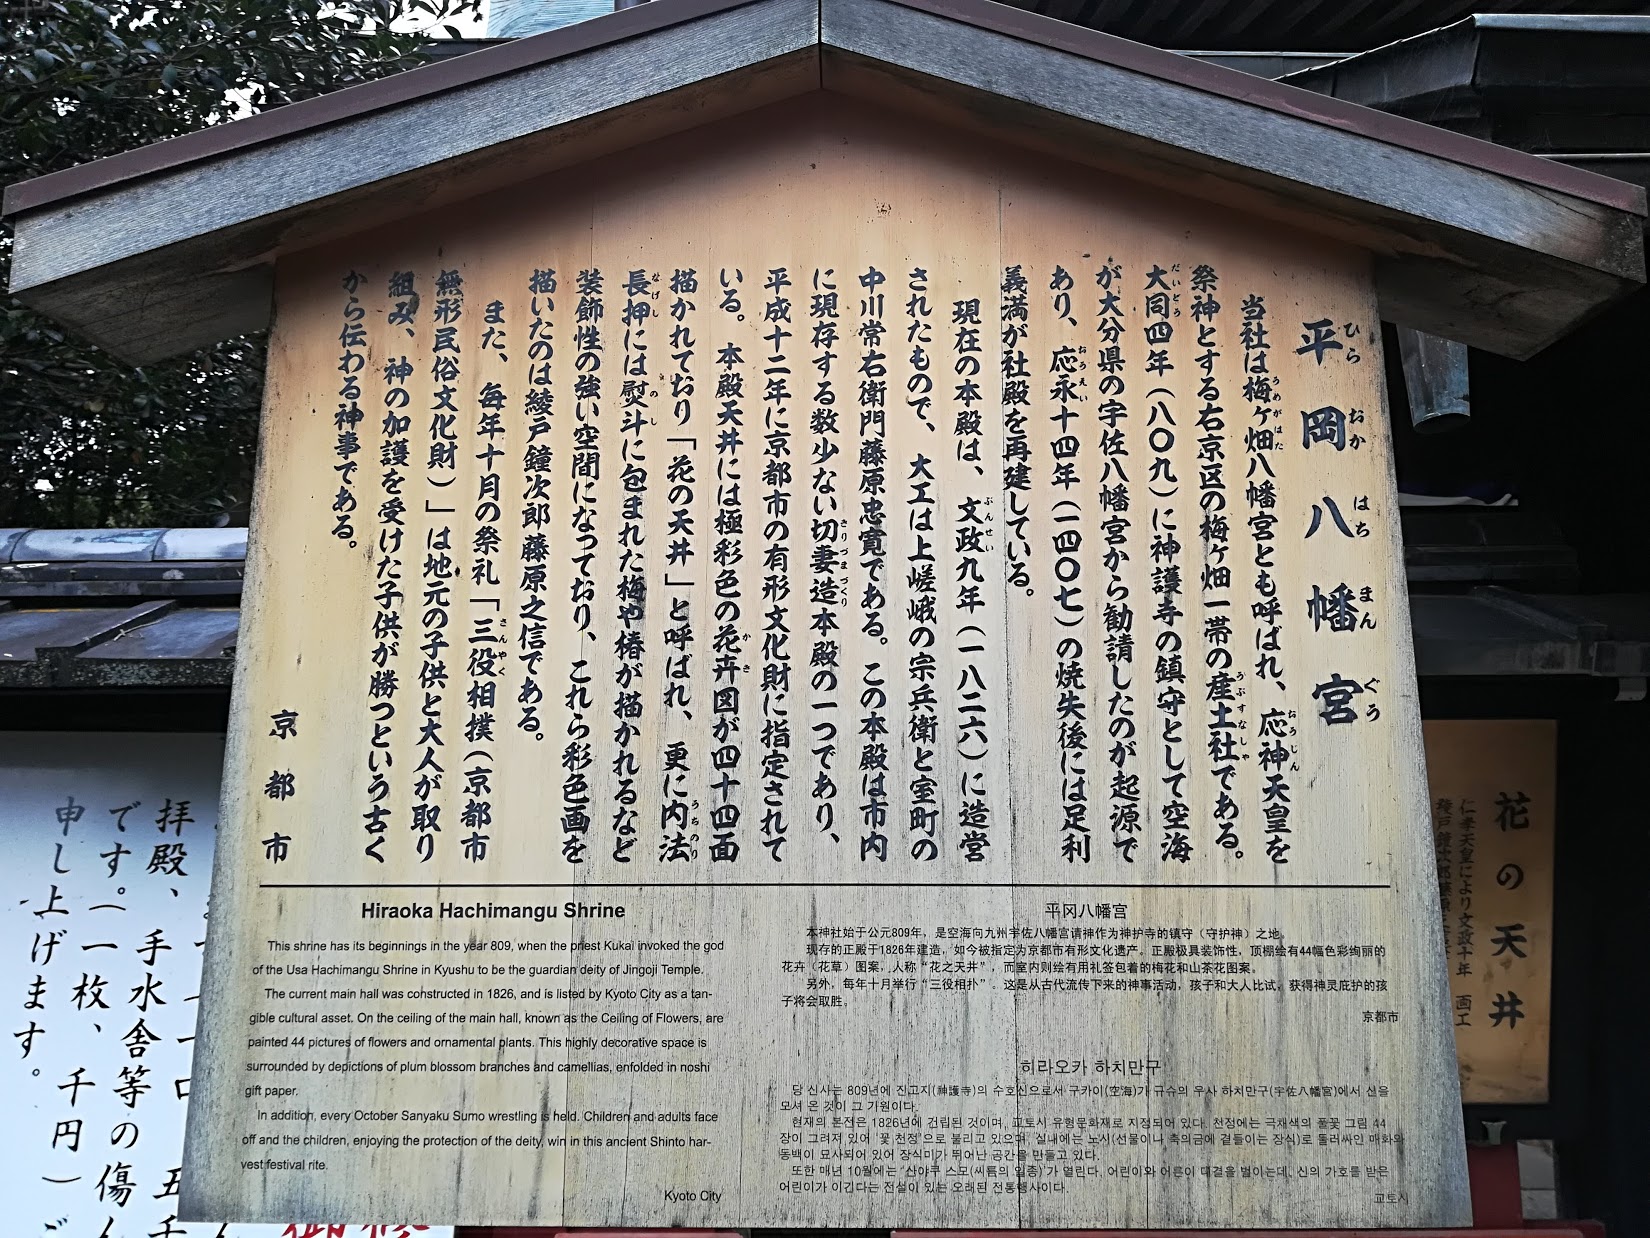 平岡八幡宮
ひらおかはちまんぐう
当社は梅ヶ畑八幡宮とも呼ばれ、応神天皇を
祭神とする右京区の梅ヶ畑一帯の産土社である。
大同四年（八〇九）に神護寺の鎮守として空海
が大分県の宇佐八幡宮から勧請したのが起源で
あり、応永十四年（一四〇七）の焼失後には足利
義満が社殿を再建している。
現在の本殿は、文政九年（一八二六）に造営
されたもので、大工は上嵯峨の宗兵衛と室町の
中川常右衛門藤原忠寛である。この本殿は市内
に現存する数少ない切妻造本殿の一つであり、
平成十二年に京都市の有形文化財に指定されて
いる。本殿天井には極彩色の花卉図が四十四面
描かれており「花の天井」と呼ばれ、更に内法
長押には熨斗に包まれた梅や椿が描かれるなど
装飾性の強い空間になっており、これら彩色画を
描いたのは綾戸鐘次郎藤原之信である。
また、毎年十月の祭礼「三役相撲（京都市
無形民俗文化財）」は地元の子供と大人が取り
組み、神の加護を受けた子供が勝つという古く
から伝わる神事である。
京都市
Hiraoka Hachimangu Shrine
This shrine has its beginnings in the year 809, when the priest Kukai invoked the god
of the Usa Hachimangu Shrine in Kyushu to be the guardian deity of Jingoji Temple.
The current main hall was constructed in 1826, and is listed by Kyoto City as a tan-
gible cultural asset. On the ceiling of the main hall, known as the Ceiling of Flowers, are
painted 44 pictures of flowers and ornamental plants. This highly decorative space is
surrounded by depictions of plum blossom branches and camellias, enfolded in noshi
gift paper.
In addition, every October Sanyaku Sumo wrestling is held. Children and adults face
off and the children, enjoying the protection of the deity, win in this ancient Shinto har-
vest festival rite.
Kyoto City
平冈八幡宫
本神社始于公元809年，是空海向九州宇佐八幡宫请神作为神护寺的镇守（守护神）之地。
现存的正殿于1826年建造，如今被指定为京都市有形文化遗产。正殿极具装饰性，顶棚绘有44幅色彩绚丽的
花卉（花草）图案，人称“花之天井”，而室内则绘有用礼签包着的梅花和山茶花图案。
另外，每年十月举行“三役相扑”。这是从古代流传下来的神事活动，孩子和大人比试，获得神灵庇护的孩
子将会取胜。
京都市
히라오카 하치만구
당 신사는 809년에 진고지(神護寺)의 수호신으로서 구카이(空海)가 규슈의 우사 하치만구(宇佐八幡宮)에서 신을
모셔 온 것이 그 기원이다.
현재의 본전은 1826년에 건립된 것이며, 교토시 유형문화재로 지정되어 있다. 천정에는 극채색의 풀꽃 그림 44
장이 그려져 있어 ‘꽃 천정’으로 불리고 있으며, 실내에는 노시(선물이나 축의금에 곁들이는 장식)로 둘러싸인 매화와
동백이 묘사되어 있어 장식미가 뛰어난 공간을 만들고 있다.
또한 매년 10월에는 ‘산야쿠 스모(씨름의 일종)’가 열린다. 어린이와 어른이 대결을 벌이는데, 신의 가호를 받은
어린이가 이긴다는 전설이 있는 오래된 전통행사이다.
교토시
花の天井
仁孝天皇により文政十年 画工
拝殿、手水舎等の傷
です。（一枚、千円）
申し上げます。